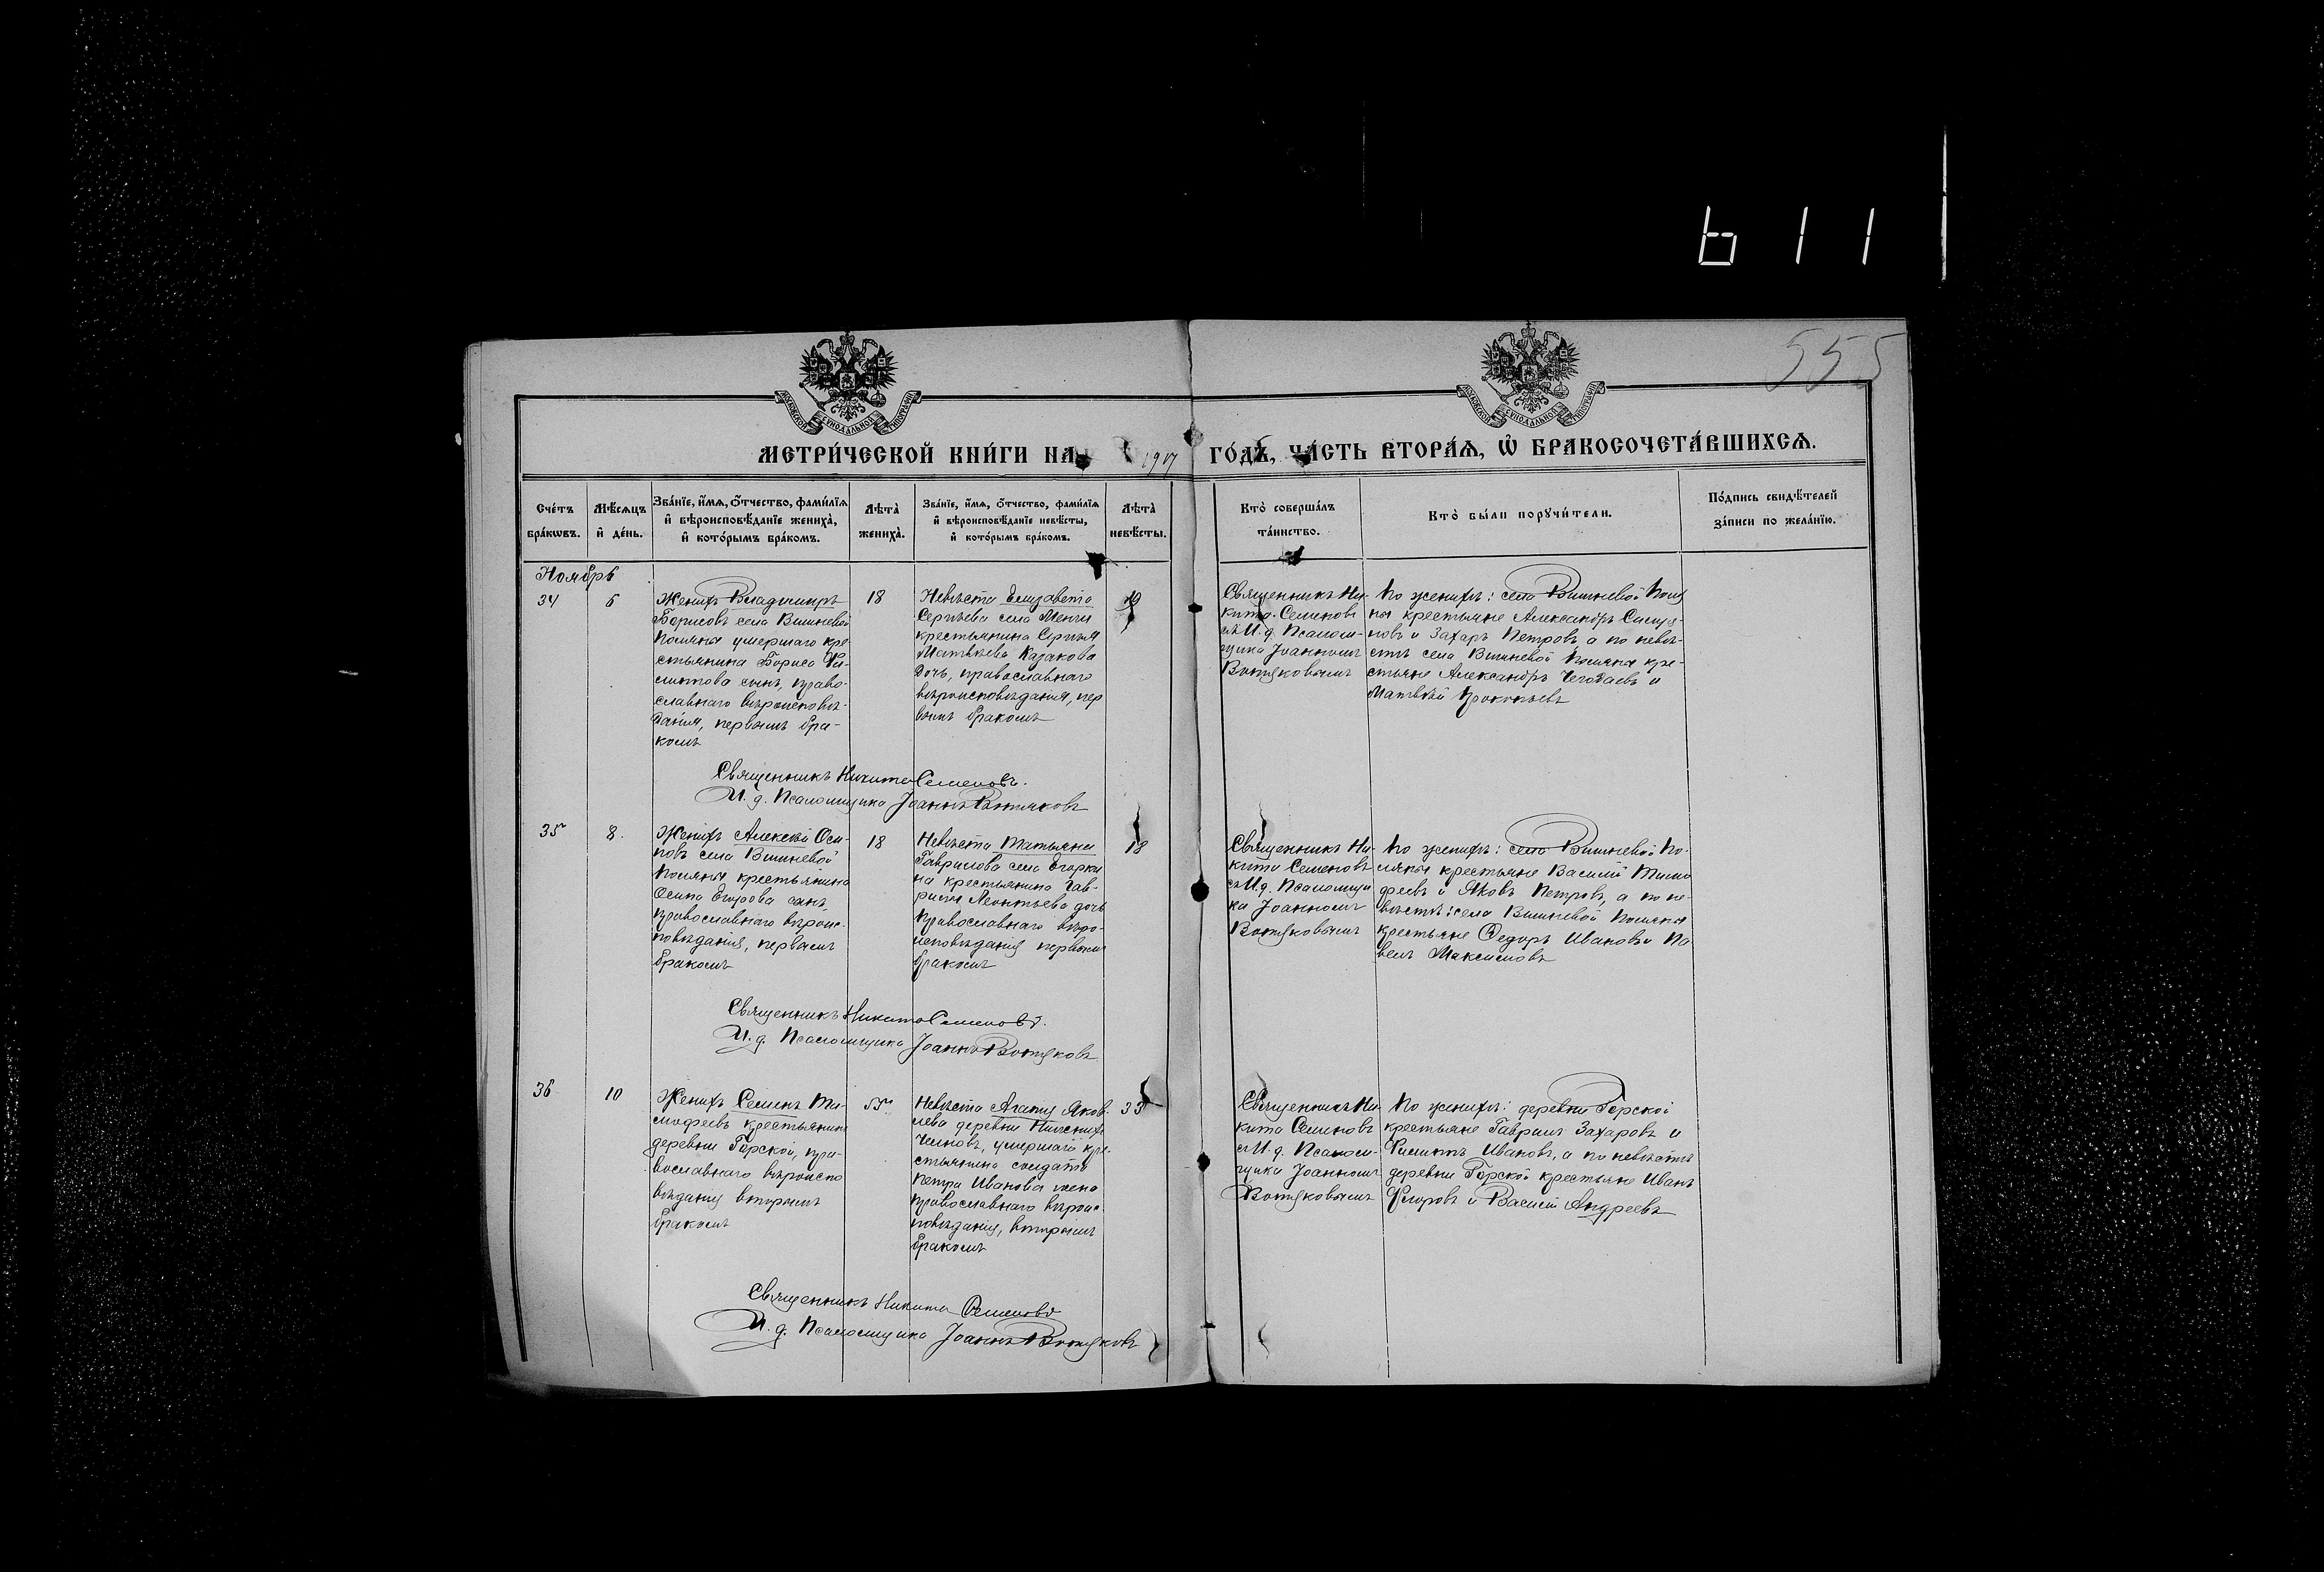 611
555
МОСКОВСКОЙ СѴНОДАЛЬНОЙ ТИПОГРАФІИ
МОСКОВСКОЙ СѴНОДАЛЬНОЙ ТИПОГРАФІИ
МЕТРИ́ЧЕСКОЙ КНИ́ГИ НА 1917 ГО́ДЪ, ЧА́СТЬ ВТОРА́Ѧ, Ѡ҆ БРАКОСОЧЕТА́ВШИХСѦ.
Сче́тъ бра́кѡвъ.
Мѣ́сѧцъ и҆ де́нь.
Зва́нїе, и҆́мѧ, ѻ҆́тчество, фами́лїѧ
и҆ вѣроисповѣ́данїе жениха̀,
и҆ кото́рымъ бра́комъ.
Лѣта̀ жениха̀.
Зва́нїе, и҆́мѧ, ѻ҆́тчество, фами́лїѧ
и҆ вѣроисповѣ́данїе невѣ́сты,
и҆ кото́рымъ бра́комъ.
Лѣта̀ невѣ́сты.
Кто̀ соверша́лъ
та́инство.
Кто̀ бы́ли порꙋчи́тели.
По́дпись свидѣ́телей
за́писи по жела́нїю.
Ноябрь
34
6
Женихъ Владимиръ
Борисовъ села Вишневой
Поляны умершаго кре
стьянина Бориса Фи-
липпова сынъ, право-
славнаго вѣроисповѣ-
данія, первымъ бра-
комъ
18
Невѣста Елизавета
Сергѣева села
крестьянина Сергѣя
Матвѣева Казакова
дочь, православнаго
вѣроисповѣданія, пер
вымъ бракомъ
19
Священникъ Ни-
кита Семеновъ
съ И. д. Псалом-
щика Іоанномъ
Вотяковымъ
По женихѣ: села Вишневой Поля
ны крестьяне Александръ
и Захаръ Петровъ, а по невѣ-
стѣ села Вишневой Поляны кре-
стьяне Александръ Чегодаевъ и
Матвѣй Прокопьевъ
Священникъ Никита Семеновъ.
И. д. Псаломщика Іоаннъ Вотяковъ
35
8.
Женихъ Алексѣй Оси-
повъ села Вишневой
Поляны крестьянина
Осипа Егорова сынъ,
православнаго вѣроис-
повѣданія, первымъ
бракомъ
18
Невѣста Татьяна
Гаврилова села Егорки
на крестьянина Гав-
рила Леонтьева дочь
православнаго вѣро-
исповѣданія первымъ
бракомъ
18
Священникъ Ни-
кита Семеновъ
съ И. д. Псаломщи
ка Іоанномъ
Вотяковымъ
По женихѣ: села Вишневой По-
ляны крестьяне Василій Тимо
феевъ и Яковъ Петровъ, а по не-
вѣстѣ: села Вишневой Поляны
крестьяне Ѳедоръ Ивановъ и Па
велъ Максимовъ
Священникъ Никита Семеновъ.
И. д. Псаломщика Іоаннъ Вотяковъ
36
10
Женихъ Семенъ Ти-
мофеевъ крестьянинъ
деревни Горской, пра-
вославнаго вѣроиспо
вѣданія вторымъ
бракомъ
55
Невѣста Агапія Яков-
лева деревни Нижнихъ
Челновъ, умершаго кре-
стьянина солдата
Петра Иванова жена
православнаго вѣроис-
повѣданія, вторымъ
бракомъ
33
Священникъ Ни-
кита Семеновъ
съ И. д. Псалом-
щика Іоанномъ
Вотяковымъ
По женихѣ: деревни Горской
крестьяне Гавріилъ Захаровъ и
Филиппъ Ивановъ, а по невѣстѣ
деревни Горской крестьяне Иванъ
Егоровъ и Василій Андреевъ
Священникъ Никита Семеновъ
И. д. Псаломщика Іоаннъ Вотяковъ